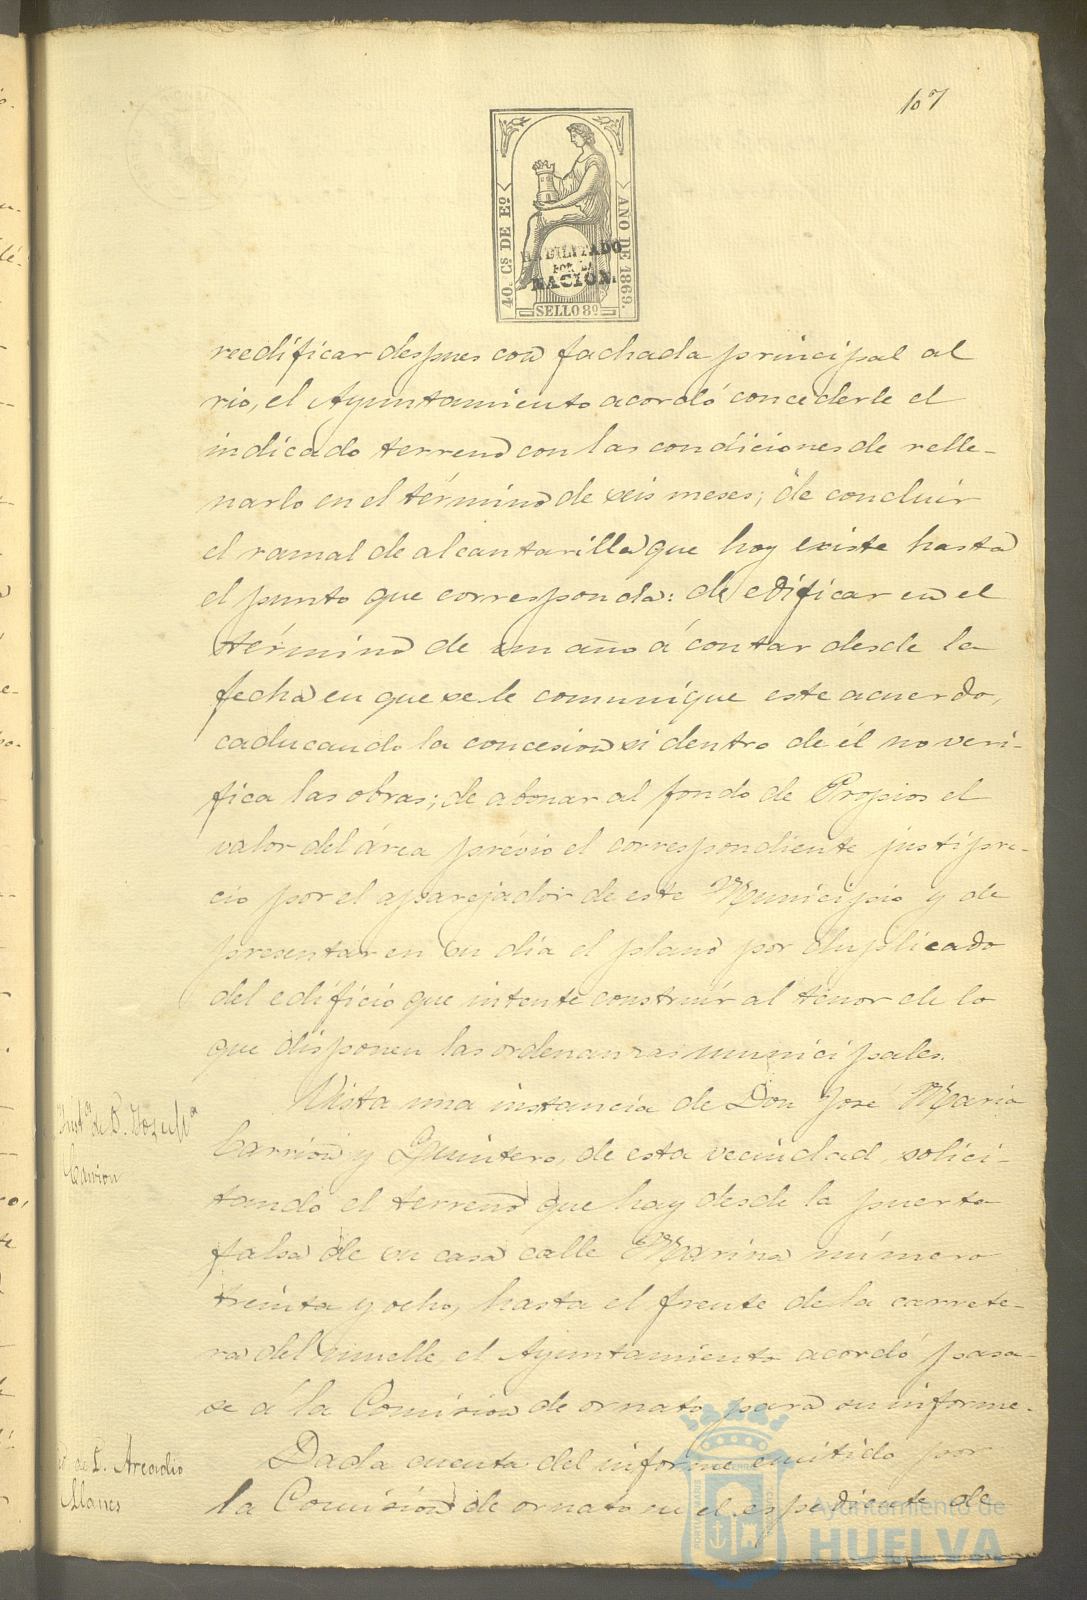 107
40. Cs. DE Eo.
AÑO DE 1869.
HABILITADO
POR LA
NACION.
SELLO 8º
reedificar despues con fachada principal al
rio, el Ayuntamiento acordó concederle el
indicado terreno con las condiciones de relle-
narlo en el término de seis meses; de concluir
el ramal de alcantarilla que hoy existe hasta
el punto que corresponda: de edificar en el
término de un año á contar desde la
fecha en que se le comunique este acuerdo,
caducando la concesion si dentro de él no veri-
fica las obras; de abonar al fondo de Propios el
valor del área prévio el correspondiente justipre-
cio por el aparejador de este Municipio y de
presentar en su dia el plano por duplicado
del edificio que intente construir al tenor de lo
que disponen las ordenanzas municipales.
Instª de D. José Mª
Carrion
Vista una instancia de Don José Maria
Carrion y Quintero, de esta vecindad, solici-
tando el terreno que hay desde la puerta
falsa de su casa calle Marina número
treinta y ocho, hasta el frente de la carrete-
ra del muelle, el Ayuntamiento acordó pasa-
se á la Comision de ornato para su informe.
de D. Arcadio
Llanes
Dada cuenta del informe emitido por
la Comision de ornato en el espediente de
Ayuntamiento de
HUELVA